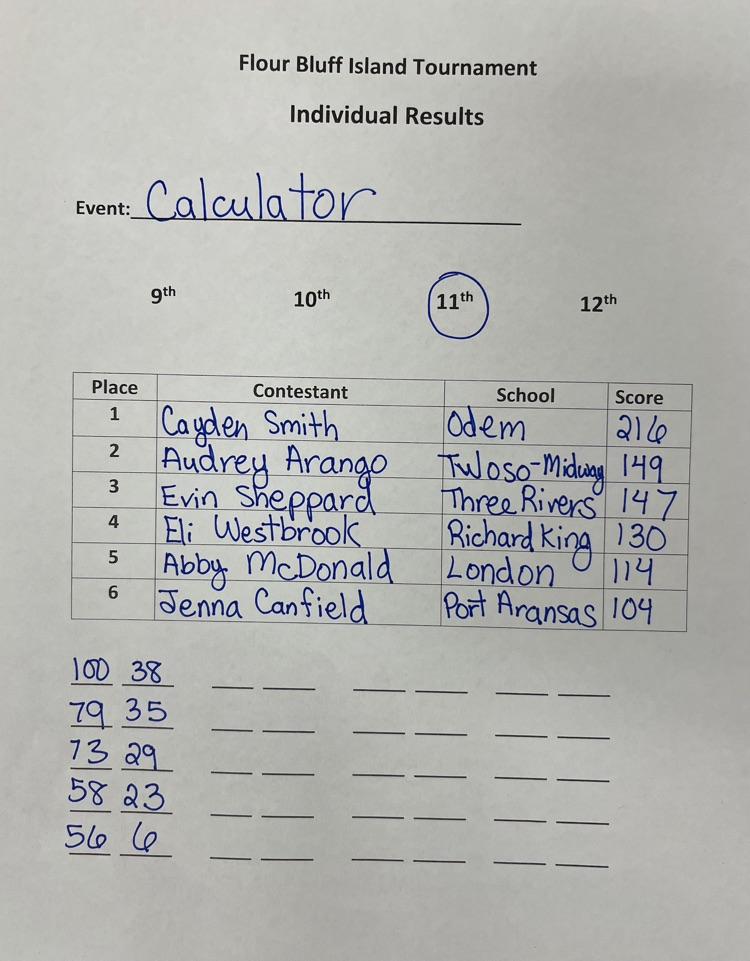 Flour Bluff Island Tournament
Individual Results
Event: Calculator
9th 10th 11th 12th
Place Contestant School Score
1 Cayden Smith Odem 216
2 Audrey Arango Tuloso-Midway 149
3 Evin Sheppard Three Rivers 147
4 Eli Westbrook Richard King 130
5 Abby McDonald London 114
6 Jenna Canfield Port Aransas 104
100 38
79 35
73 29
58 23
56 6